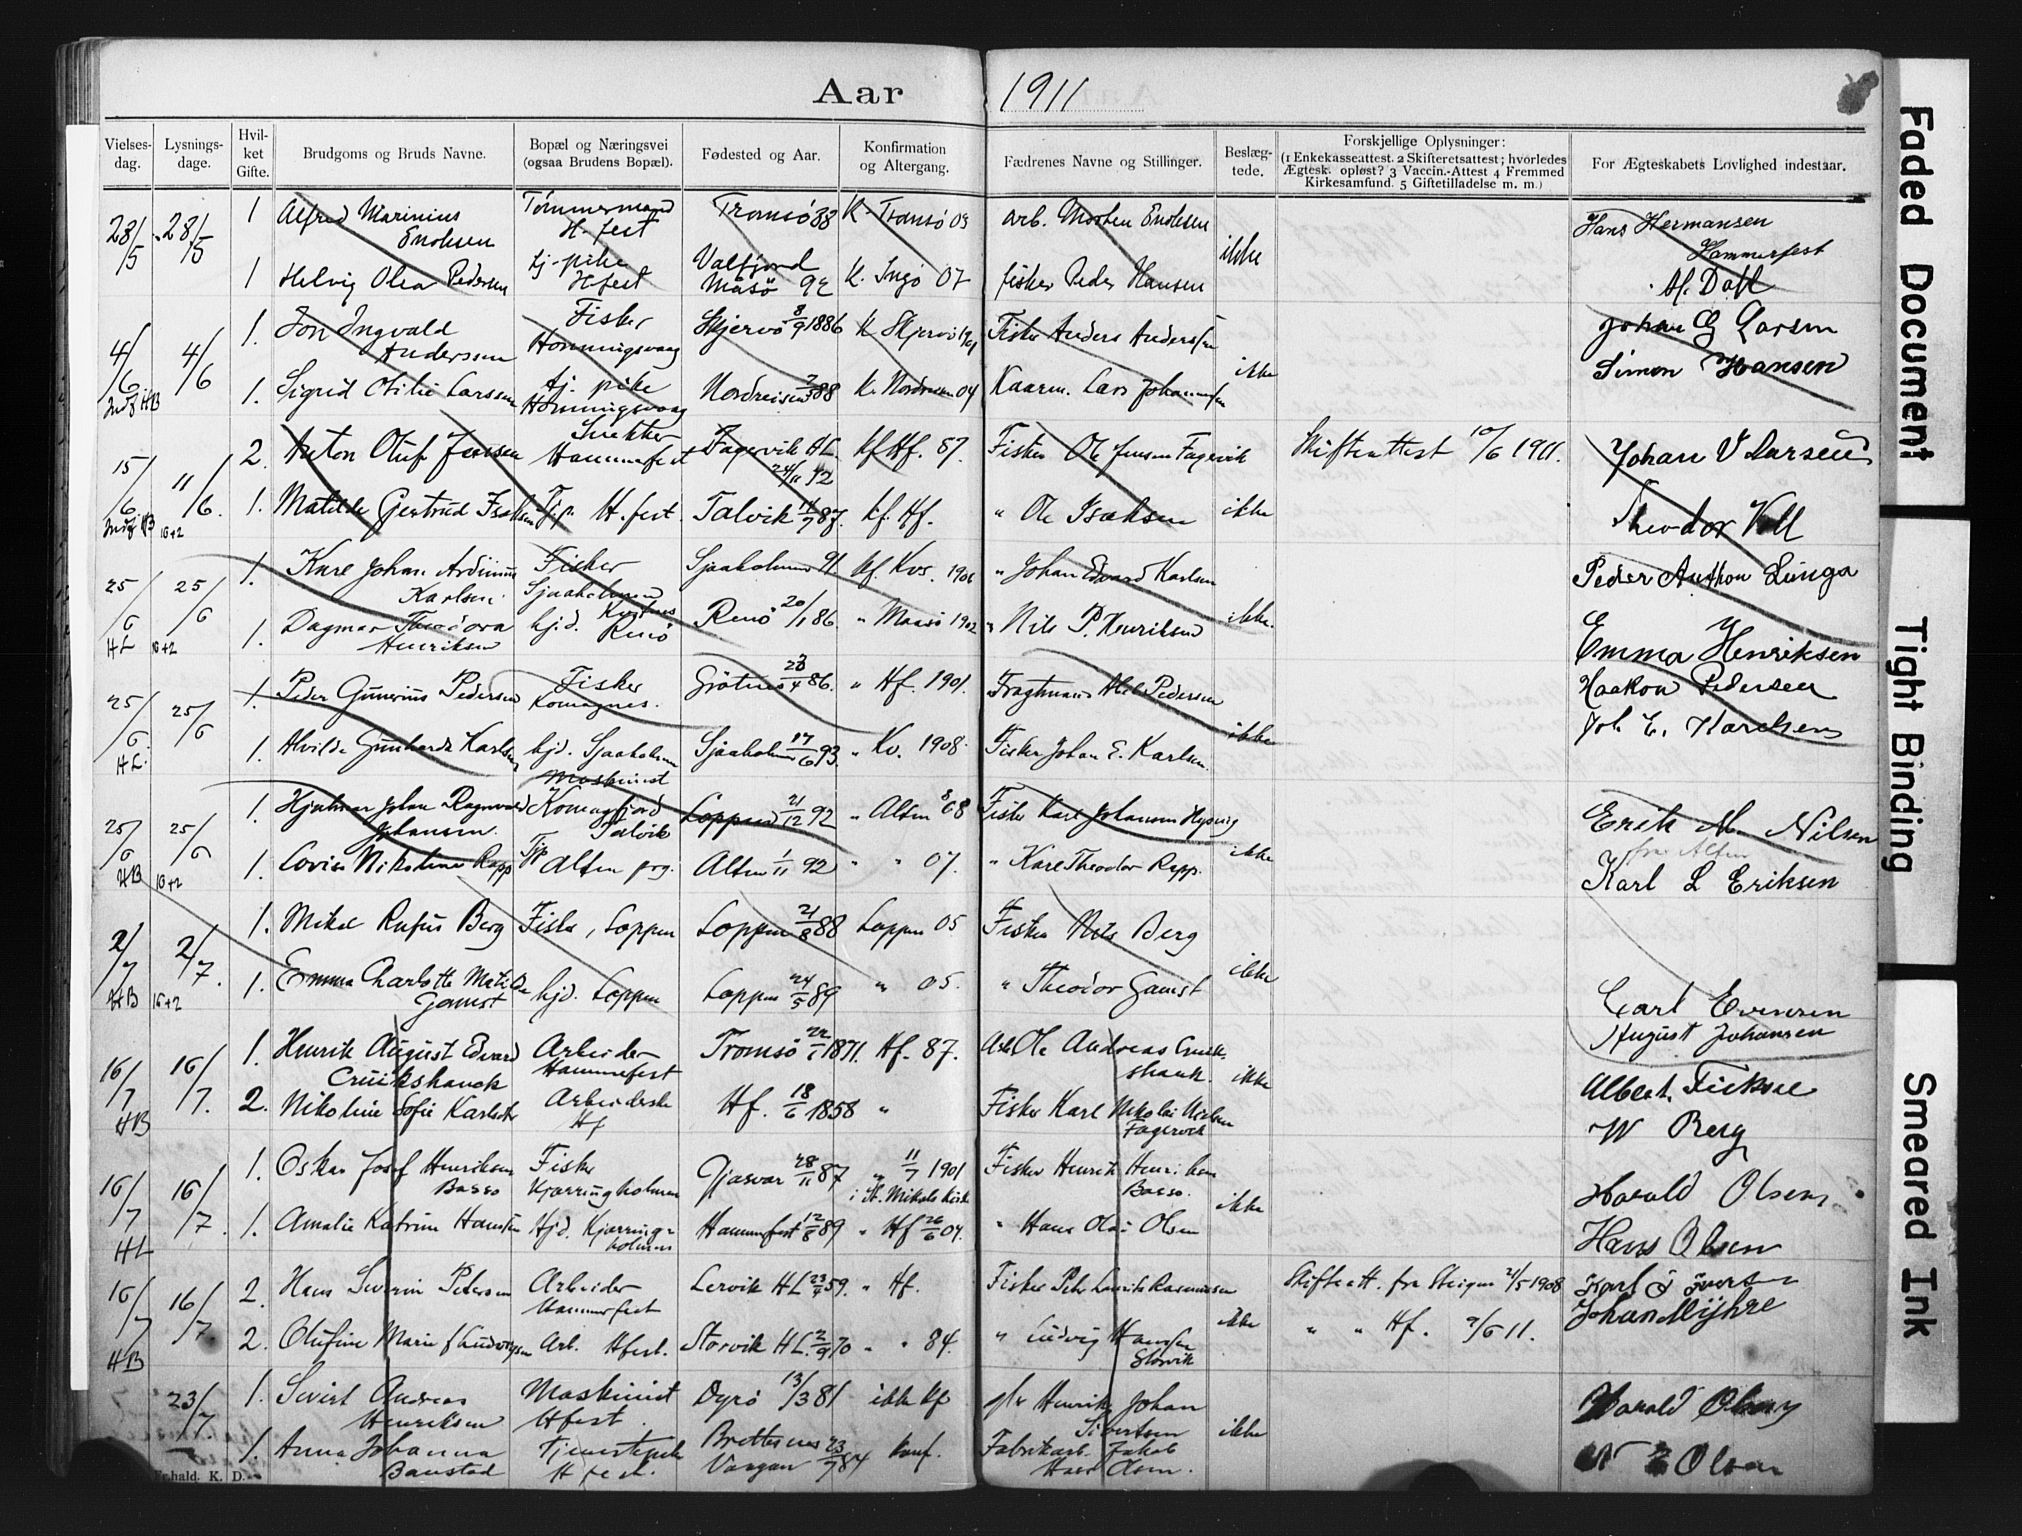 Aar 1911
Vielses-dag. Lysnings-dage. Hvil-ket Gifte. Brudgoms og Bruds Navne. Bopæl og Næringsvei (ogsaa Brudens Bopæl). Fødested og Aar. Konfirmation og Altergang. Fædrenes Navne og Stillinger. Beslæg-tede. Forskjellige Oplysninger: (1 Enkekasseattest. 2 Skifteretsattest; hvorledes Ægtesk. opløst? 3 Vaccin.-Attest 4 Fremmed Kirkesamfund. 5 Giftetilladelse m. m.) For Ægteskabets Lovlighed indestaar.
28/5 28/5 1 Alfred Marinius Enoksen Tømmermand H.fest Tromsö 88 K. Tromsö 03 arb. Morten Enoksen ikke Hans Hermansen Hammerfest
1 Helvig Olea Pedersen tj-pike Hfest Valfjord Måsö 92 K. Ingö 07 fisker Peder Hansen M. Dahl
4/6 4/6 1. Jon Ingvald Anderssen Fisker Honningsvaag Skjervö 8/9 1886 K. Skjervö Fisker Anders Anderssen ikke Johan G Larsen
1. Sigrid Otilie Larssen tj. pike Honningsvaag Nordreisen 88 K. Nordreisen 04 Kaarm. Lars Johannessen Simon Hansen
15/6 11/6 2. Anton Oluf Jenssen Snekker Hammerfest Fagervik HL 24/11 72 kf Hf. 87. Fisker Ole Jensen Fagervik ikke Skifteattest 10/6 1911. Johan V Larsen
1. Matilde Gertrud Isaksen Tjp. H.fest Talvik 11/7 87. kf. Hf. " Ole Isaksen Theodor Voll
25/6 HL 25/6 10+2 1. Kare Johan Ardinius Karlsen Fisker Sjaaholmen Sjaaholmen 91 kf. Kvs. 1906 " Johan Edvard Karlsen ikke. Peder Anthon Lunga
1. Dagmar Theodora Henriksen hjd. Renö Renö 20/1 86. " Maasö 1902 " Nils P. Henriksen Emma Henriksen
25/6 HL. 25/6 1. Peder Gunerius Pedersen Fisker Komagnes. Grötnes 23/4 86. " Hf. 1901. Fragtmand Pedersen ikke Haakon Pedersen
1. Alvilde Gunharda Karlsen hjd. Sjaaholmen Sjaaholmen 17/6 93. " Kv. 1908. Fisker Johan E. Karlsen. Joh. E. Karlsen
25/6 HB 25/6 10+2 1. Hjalmar Johan Ragnvald Johansen. Maskinist Komagfjord Talvik Loppen 21/12 92 " Alten 08 Fisker Karl Johansen ikke Erik M. Nilsen fra Alten
1. Lovise Nikoline Rapp Tjp Alten prg. Alten 1/11 92 " " 07. " Karl Theodor Rapp. Karl L Eriksen
2/7 HB 2/7. 10+2 1. Mikal Rufus Berg Fisker, Loppen Loppen 21/8 88 Loppen 05 Fisker Nils Berg ikke
1. Emma Charlotte Matilde Gamst hjd. Loppen Loppen 24/5 89 " 05. " Theodor Gamst Carl Evensen August Johansen
16/7 HB 16/7. 1. Henrik August Edvard Cruikshanck Arbeider Hammerfest Tromsö 22/1 1871. Hf. 87. Arb Ole Andreas Cruikshank. ikke Albert Fieksal
2. Nikoline Sofie Karlsdtr Arbeiderske Hf Hf. 18/6 1858 " Fisker Karl Nikolai Nielsen Fagervik W Berg
16/7 HL 16/7. 1. Oskar Josef Henriksen Basso Fisker Kjærringholmen Gjæsvær 28/11 87 " 11/7 1901 i St. Mikals Kirke Fisker Henrik Henriksen Basso. ikke Harald Olsen
1. Amalie Katrine Hansen Hjd. Kjærring-holmen Hammerfest 12/8 89 " Hf 26/6 04. " Hans Olai Olsen Hans Olsen
16/7 HB 16/7 2. Hans Severin Petersen Arbeider Hammerfest Lervik HL 23/4 59. " Hf. Fisker Peter Lauritz Rasmussen ikke Skifteatt. fra Steigen 21/5 1908 Karl J Iversen
2. Olufine Marie Ludvigsen Arb. Hfest. Storvik HL. 2/9 70 " " 84. " Ludvig Hansen Storvik " " Hf. 9/6 11. Johan Myhre
23/7 1. Sivert Andreas Henriksen Maskinist Hfest. Dyrö 13/3 81 ikke kf g/kr Henrik Johan Sivertsen ikke Harald Olsen
1. Anna Johanna Banstad Tjenestepike Hfest. Brettesnes Vaagan 23/7 84 konf. Fabrikarb. Jakob Hans Olsen. Olsen
Enhald. K. D.
Faded Document
Tight Binding
Smeared Ink